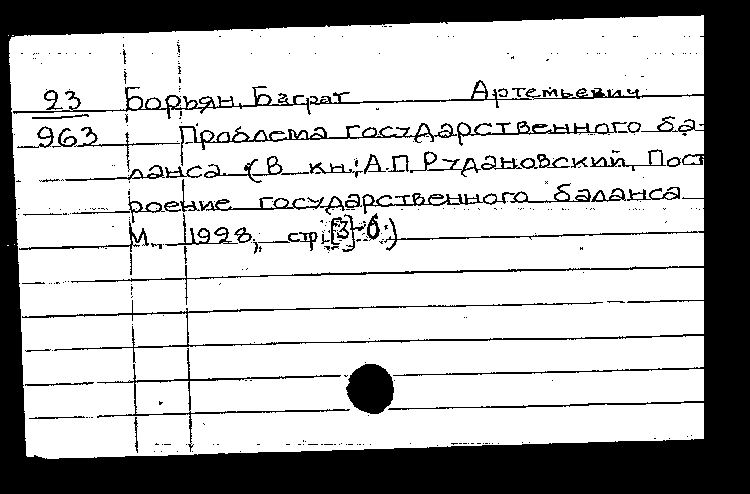 23 Борьян, Баграт Артемьевич
963 Проблема государственного ба-
ланса (В кн.: А.П. Рудановский, Пост
роение государственного баланса
М., 1928, стр. [3]-6.)